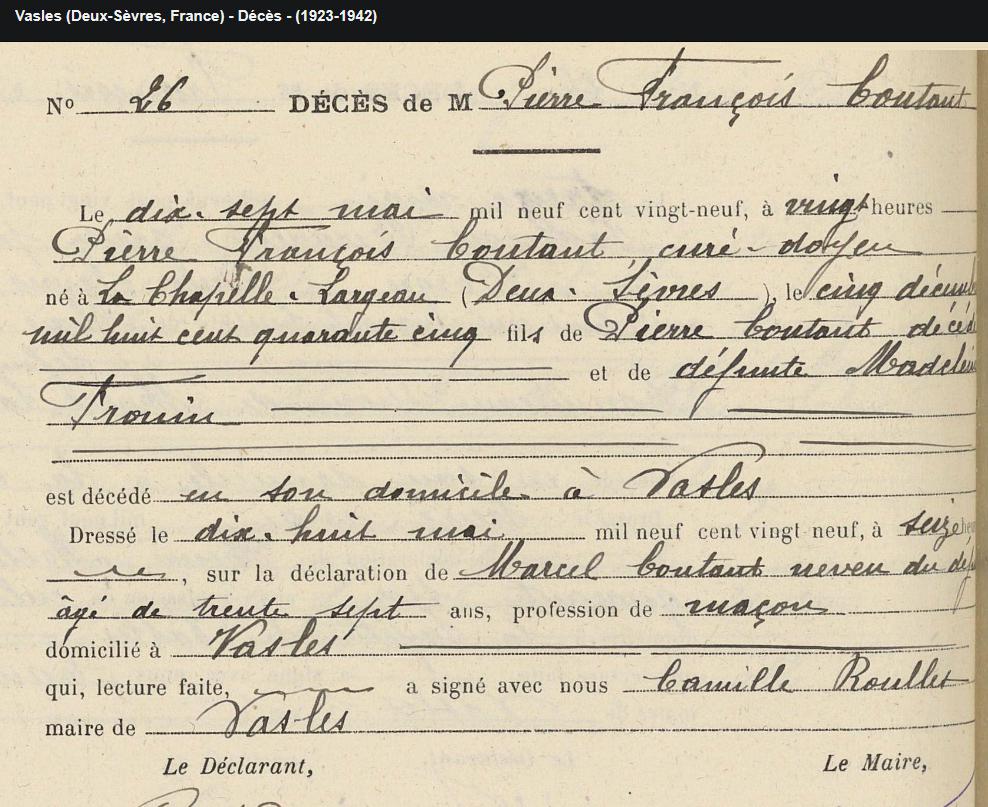 Vasles (Deux-Sèvres, France) - Décès - (1923-1942)
N° 26 DÉCÈS de M Pierre François Coutant
Le dix-sept mai mil neuf cent vingt-neuf, à vingt heures
Pierre François Coutant curé-doyen
né à La Chapelle-Largeau (Deux-Sèvres), le cinq décemb
mil huit cent quarante cinq fils de Pierre Coutant décéd
et de défunte Madelei
Fronin
est décédé en son domicile à Vasles
Dressé le dix-huit mai mil neuf cent vingt-neuf, à seize heu
, sur la déclaration de Marcel Coutant neveu du déf
agé de trente sept ans, profession de maçon
domicilié à Vasles
qui, lecture faite, a signé avec nous Camille Roullet
maire de Vasles
Le Déclarant, Le Maire,